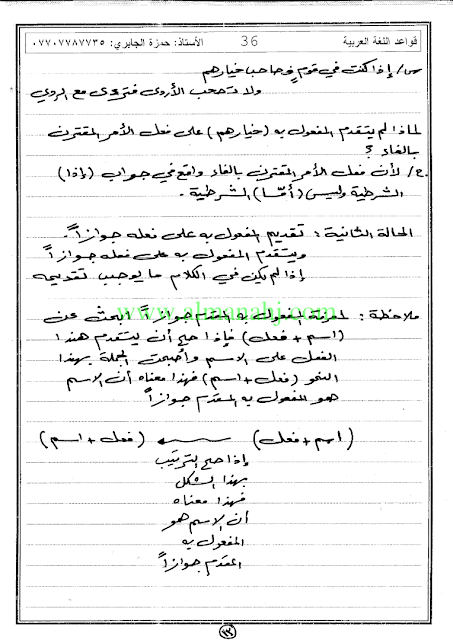 قواعد اللغة العربية 36 الأستاذ: حمزة الجابري: ٠٧٧٠٧٧٨٧٧٣٥
س/ إذا كنت في قوم فصاحب خيارهم
ولا تصحب الأردى فتردى مع الردي
لماذا لم يتقدم المفعول به (خيارهم) على فعل الأمر المقترن
بالفاء ؟
ج/ لأن فعل الأمر المقترن بالفاء واقع في جواب (إذا)
الشرطية وليس (أمّا) الشرطية .
الحالة الثانية : تقديم المفعول به على فعله جوازاً.
ويتقدم المفعول به على فعله جوازاً
إذا لم يكن في الكلام ما يوجب تقديمه
www.almanahj.com
ملاحظة : لمعرفة المفعول به المقدم جوازاً ابحث عن
(اسم + فعل) فإذا صح أن يتقدم هذا
الفعل على الاسم وأصبحت الجملة بهذا
النحو (فعل + اسم) فهذا معناه أن الاسم
هو المفعول به المقدم جوازاً
(اسم + فعل) ← (فعل + اسم)
إذا صح الترتيب
بهذا الشكل
فهذا معناه
أن الاسم هو
المفعول به
المقدم جوازاً